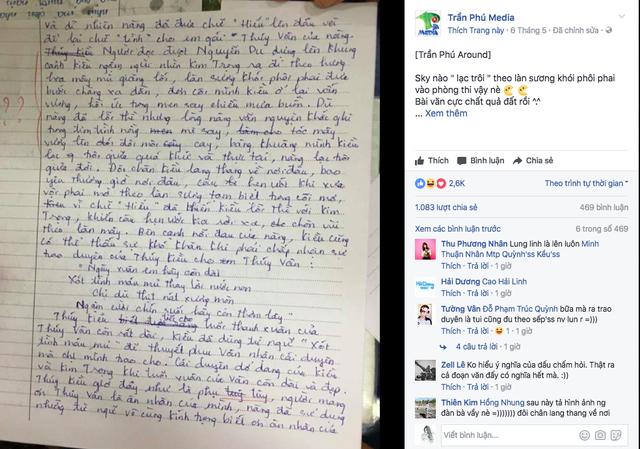 và dĩ nhiên nàng đã đưa chữ "Hiếu" lên đầu và
để lại chữ "tình" cho em gái Thúy Vân của nàng.
Thúy Kiều Người đọc được Nguyễn Du dựng lên khung
cảnh kiều ngậm ngùi nhìn Kim Trọng ra đi theo hương
hoa mây mù giăng lối, làn sương khói phôi phai đưa
bước chàng xa dần, đơn côi mình kiều ở lại vấn
vương, hồi ức trong men say chiều mưa buồn. Dù
nàng đã lỡ thì nhưng lòng nàng vẫn nguyện khắc ghi
trong tim tình nồng men mê say, làm cho tóc mây
vương lên đôi môi cay, bâng khuâng mình kiều
lạc trôi giữa quá khứ và thực tại, nàng lạc trôi
giữa đời. Đôi chân kiều lang thang về nơi đâu, bao
yêu thương giờ nơi đâu, câu thơ hẹn ước khi xưa
vội phai mờ theo làn sương tan biết trong cõi mơ,
vì chữ "Hiếu" đã khiến kiều lỗi thề với Kim
Trọng, khiến câu hẹn ước kia rời xa, chỉ chôn vùi
theo làn mây. Bên cạnh nỗi đau của nàng, Kiều cũng
có thể thấu sự khó khăn khi phải chấp nhận sự
trao duyên của Thúy Kiều cho em Thúy Vân :
"Ngày xuân em hãy còn dài
Xót tình máu mủ thay lời nước non
Chị dù thịt nát xương mòn
Ngậm cười chín suối hãy còn thơm lây"
Thúy Kiều cho tuổi thanh xuân của
Thúy Vân còn rất dài, kiều đã dùng từ ngữ "Xót
tình máu mủ" để thuyết phục Vân nhận cái duyên
mà chị mình trao cho. Cái duyên dở dang của kiều
và Kim Trọng khi tuổi xuân của Vân còn dài và đẹp.
Thúy Kiều giờ đây như là phụ tùy, người mang
ơn Thúy Vân là ân nhân của mình, nàng đã sử dụng
những từ ngữ vô cùng kính trọng biết ơn ân nhân của
? ?
Trần Phú Media
Thích Trang này · 6 Tháng 5 · Đã chỉnh sửa ·
[Trần Phú Around]
Sky nào " lạc trôi " theo làn sương khói phôi phai
vào phòng thi vậy nè
Bài văn cực chất quả đất rồi ^.^
... Xem thêm
Thích Bình luận Chia sẻ
2,6K Theo trình tự thời gian
1.083 lượt chia sẻ 469 bình luận
Xem các bình luận trước 6 trong số 469
Thu Phương Nhân Lung linh là lên luôn Minh
Thuận Nhân Mtp Quỳnh'ss Kều'ss
Thích · Trả lời · 1 · 1 giờ
Hải Dương Cao Hải Linh
Thích · Trả lời · 1 giờ
Tường Vân Đỗ Phạm Trúc Quỳnh bữa mà ra trao
duyên là tui cũng đu theo sếp'ss nv lun r =)))
Thích · Trả lời · 1 · 1 giờ
4 câu trả lời · 1 giờ
Zell Lê Ko hiểu ý nghĩa của dấu chấm hỏi. Thật ra
cả đoạn văn đấy có nghĩa hết mà. :))
Thích · Trả lời · 1 giờ
Thiên Kim Hồng Nhung sau này tả hình ảnh ng
đàn bà vầy nè =))))))) đôi chân lang thang về nơi
Viết bình luận...